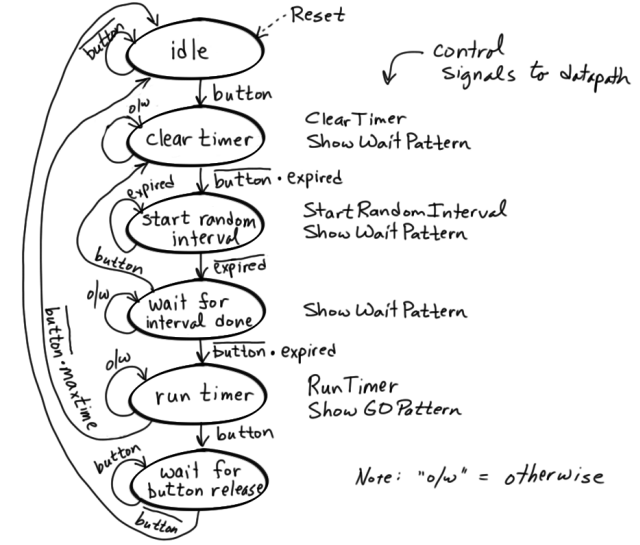 Reset
button
idle
control
signals to datapath
button
o/w
clear timer
ClearTimer
Show Wait Pattern
button · expired
expired
start random
interval
StartRandomInterval
Show Wait Pattern
button
expired
o/w
wait for
interval done
Show Wait Pattern
button · expired
button · maxtime
o/w
run timer
RunTimer
Show GO Pattern
button
button
wait for
button release
Note: "o/w" = otherwise
button